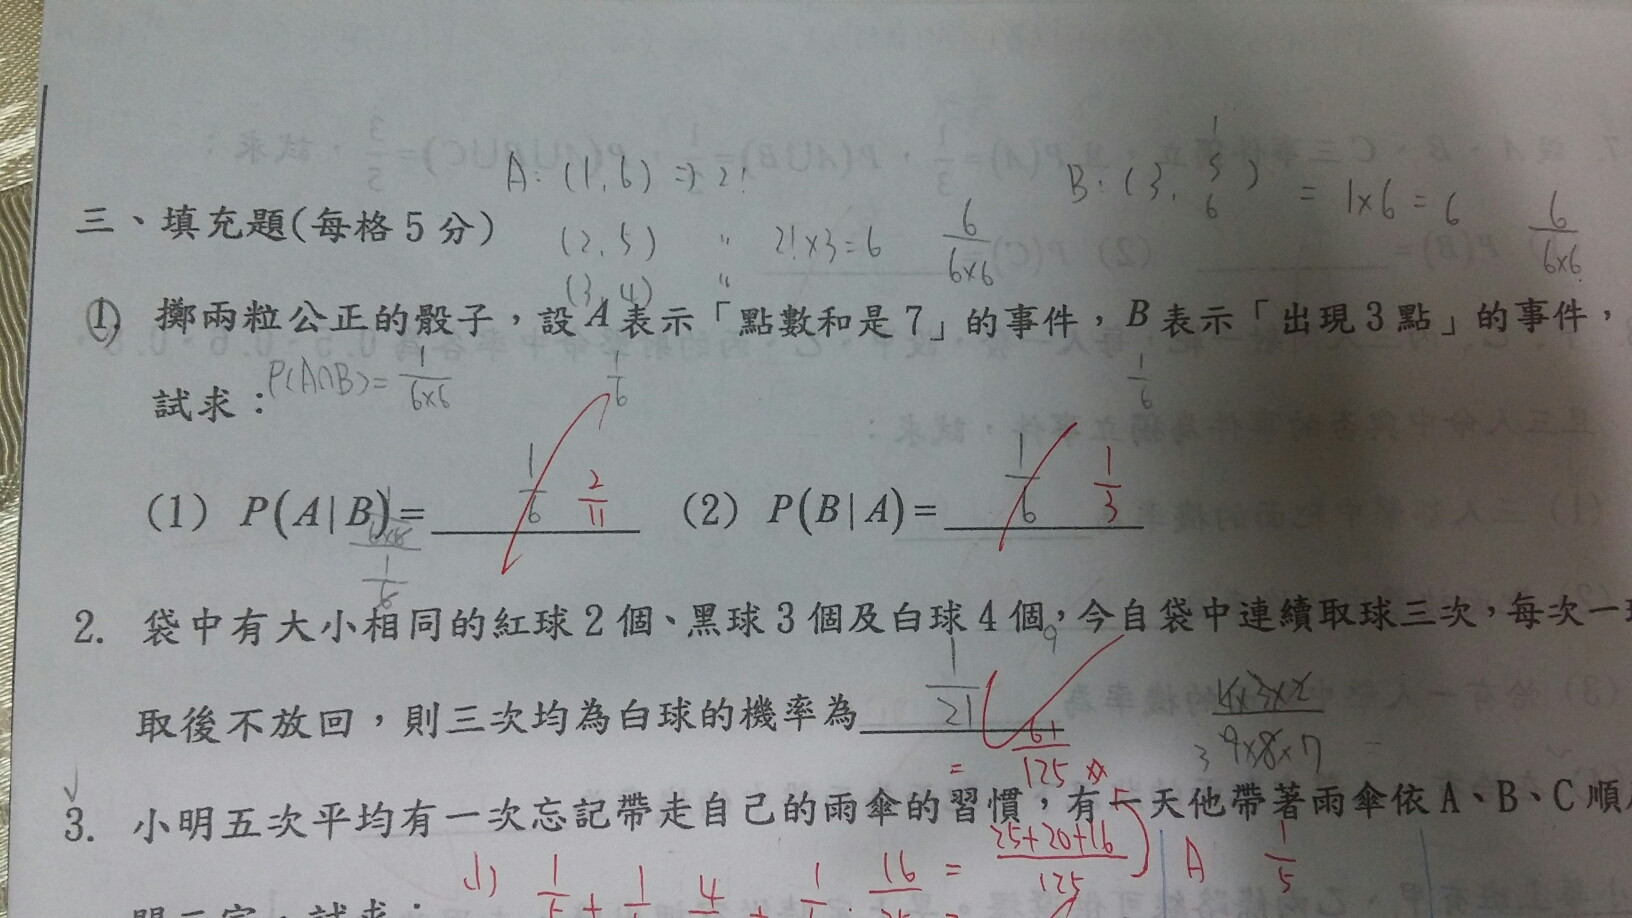 A: (1, 6) ⇒ 2!
B: (3, 1 5 6) = 1×6 = 6 6/6×6
三、填充題(每格5分)
(2, 5) " 2!×3=6 6/6×6
(3, 4) "
① 擲兩粒公正的骰子，設A表示「點數和是7」的事件，B表示「出現3點」的事件，
試求： P(A∩B)= 1/6×6 1/6 1/6
(1) P(A|B)= 1/6 2/11 (2) P(B|A)= 1/6 1/3
2. 袋中有大小相同的紅球2個、黑球3個及白球4個，今自袋中連續取球三次，每次一
取後不放回，則三次均為白球的機率為 1/21 4×3×2/9×8×7 =
= 61/125
3. 小明五次平均有一次忘記帶走自己的雨傘的習慣，有一天他帶著雨傘依A、B、C順
(1) 1/5 + 1/5 4/5 + 1/5 16/25 = 25+20+16/125 A 1/5
試求：